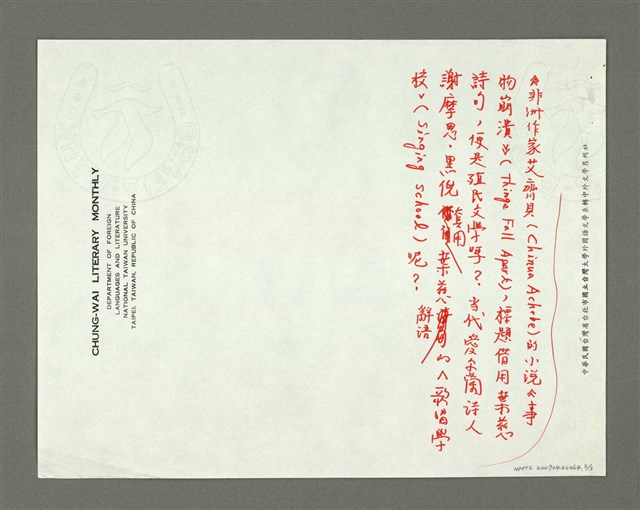 中華民國台灣省台北市國立台灣大學外國語文學系轉中外文學月刊社
非洲作家艾濟貝(Chinua Achebe)的小說《事
物崩潰》(Things Fall Apart),標題借用葉慈
詩句,便是殖民文學嗎?當代愛爾蘭詩人
謝摩思·黑倪套用葉慈辭語的〈歌唱學
校〉(Singing School)呢?
CHUNG-WAI LITERARY MONTHLY
DEPARTMENT OF FOREIGN
LANGUAGES AND LITERATURE
NATIONAL TAIWAN UNIVERSITY
TAIPEI, TAIWAN, REPUBLIC OF CHINA